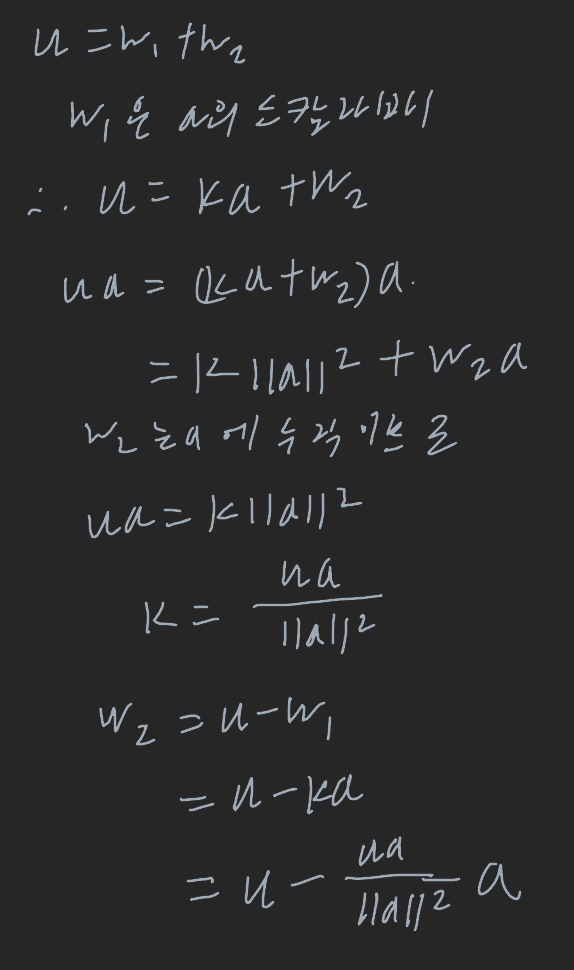 u = w₁ + w₂
w₁은 a의 스칼라배이
∴ u = ka + w₂
ua = (ka + w₂)a.
= k||a||² + w₂a
w₂는 a에 수직이므로
ua = k||a||²
k = ua / ||a||²
w₂ = u - w₁
= u - ka
= u - ua / ||a||² a